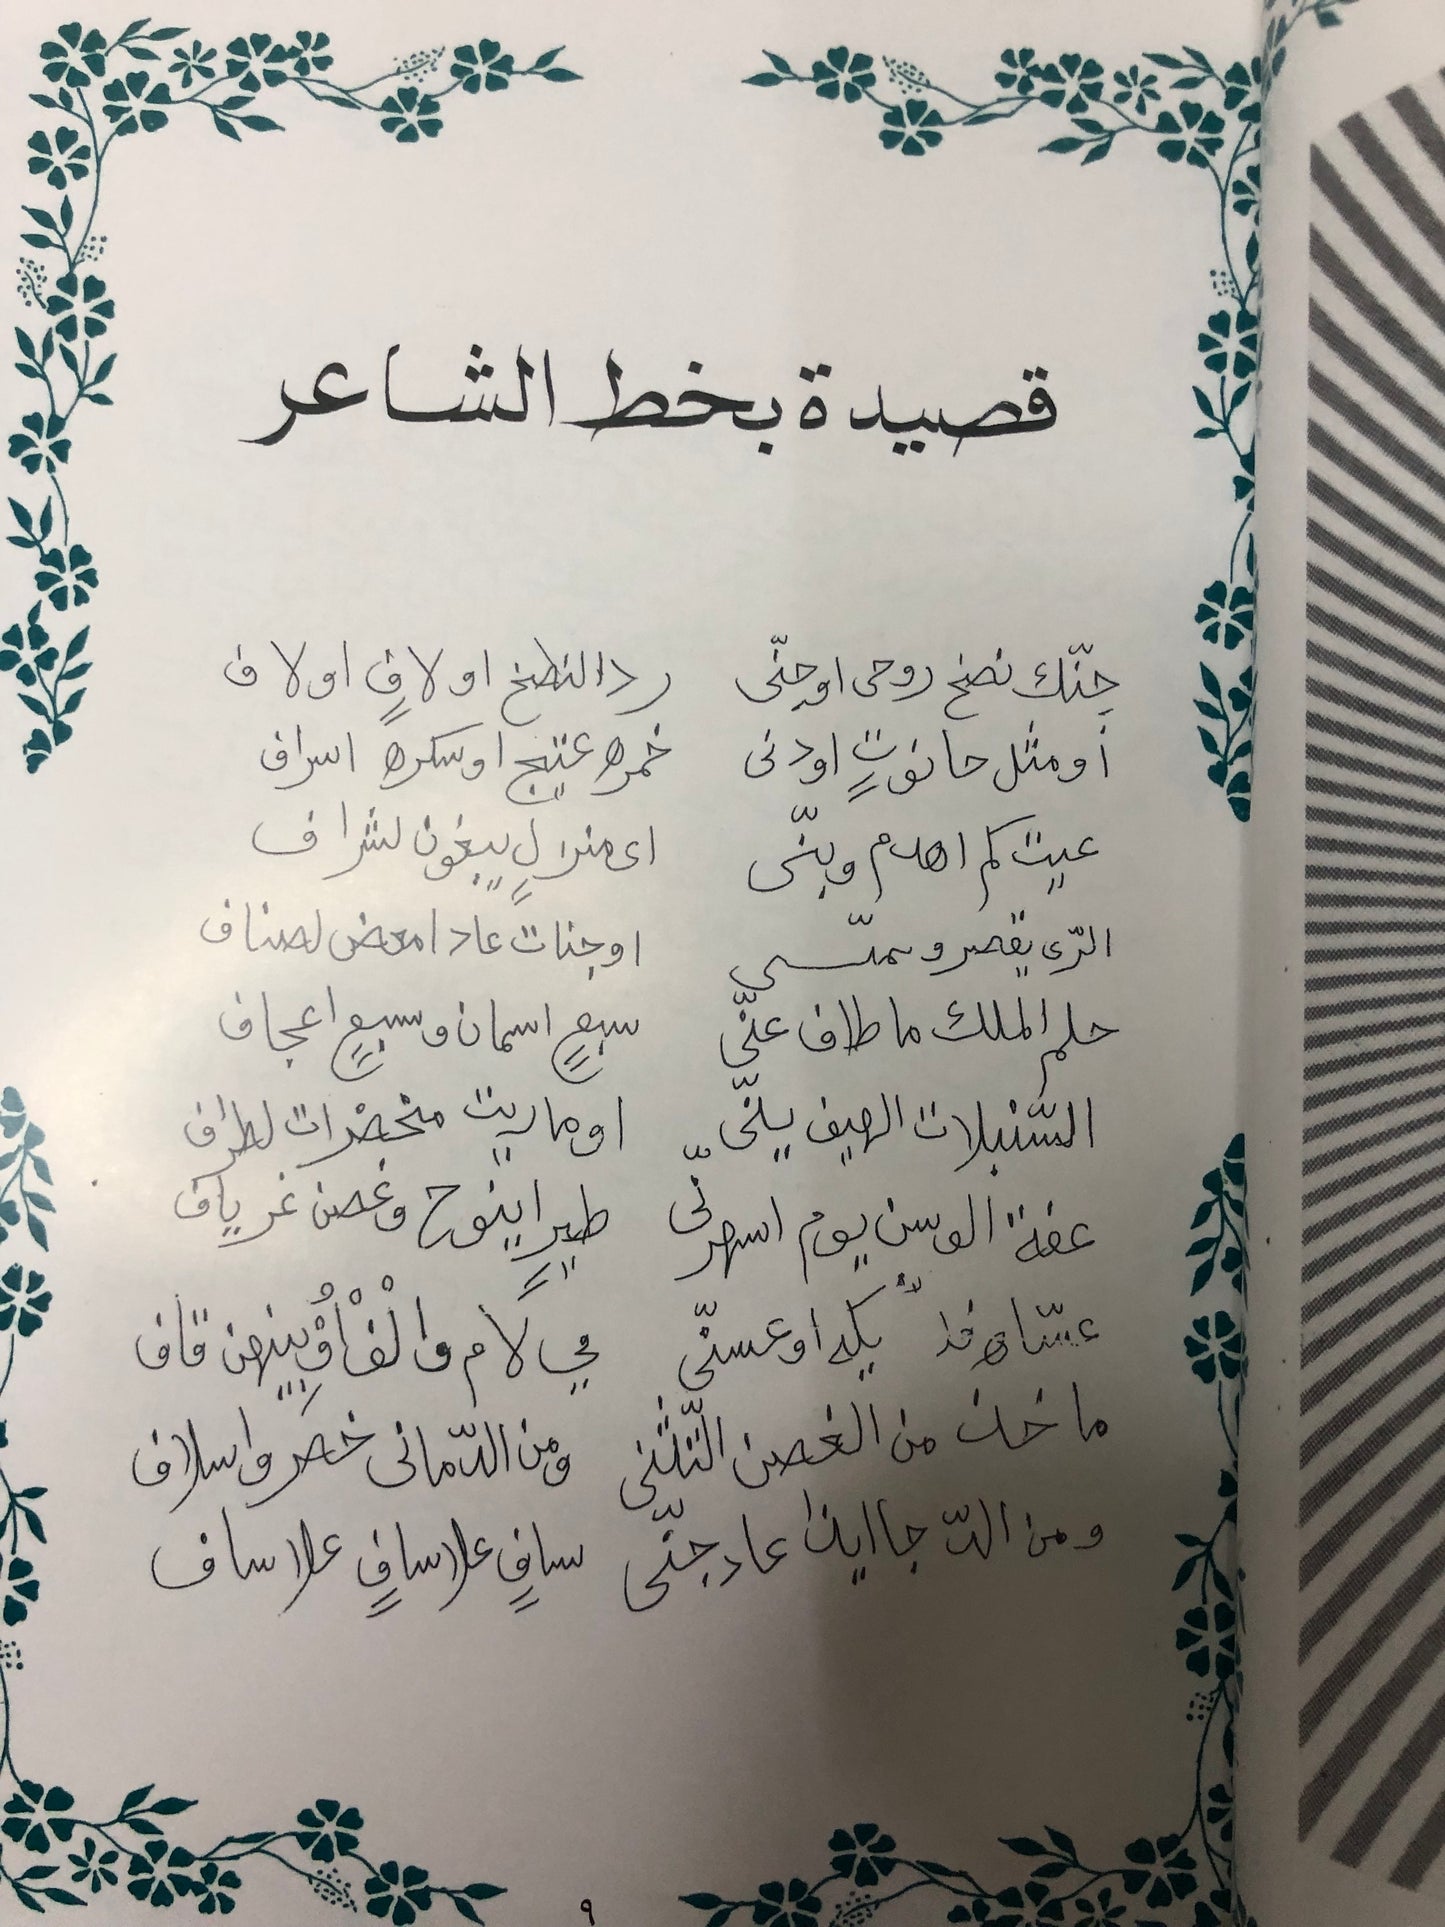 قصيدة بخط الشاعر
جنّك نضخ روحى اوجنّى ردالنطخ اولافٍ اولاف
أومثل حانوتٍ اودنى خمره عتيج اوسكره اسراف
عيت كم اهدم وبنّى اى منزلٍ يبغون لشراف
الرّى يقصر وسمتّسى اوجنات عاد امعض لصناف
حلم الملك ماطاف عنّى سبعٍ اسمان وسبعٍ اعجاف
السّنبلات الهيف يلنّى اوماريت مخضرات لطراف
عفة الوسن يوم اسهرنّى طيرٍ اينوح وغصن غرياف
عسّاه يكه اوعسنّى في لام والْفْ اوْبينهن قاف
ما خذت من الغصن التّثنّى ومن الدّمانى خصر واسلاف
ومن الدّجا ايذا عاد جنّى سافٍ علا سافٍ علا ساف
٩